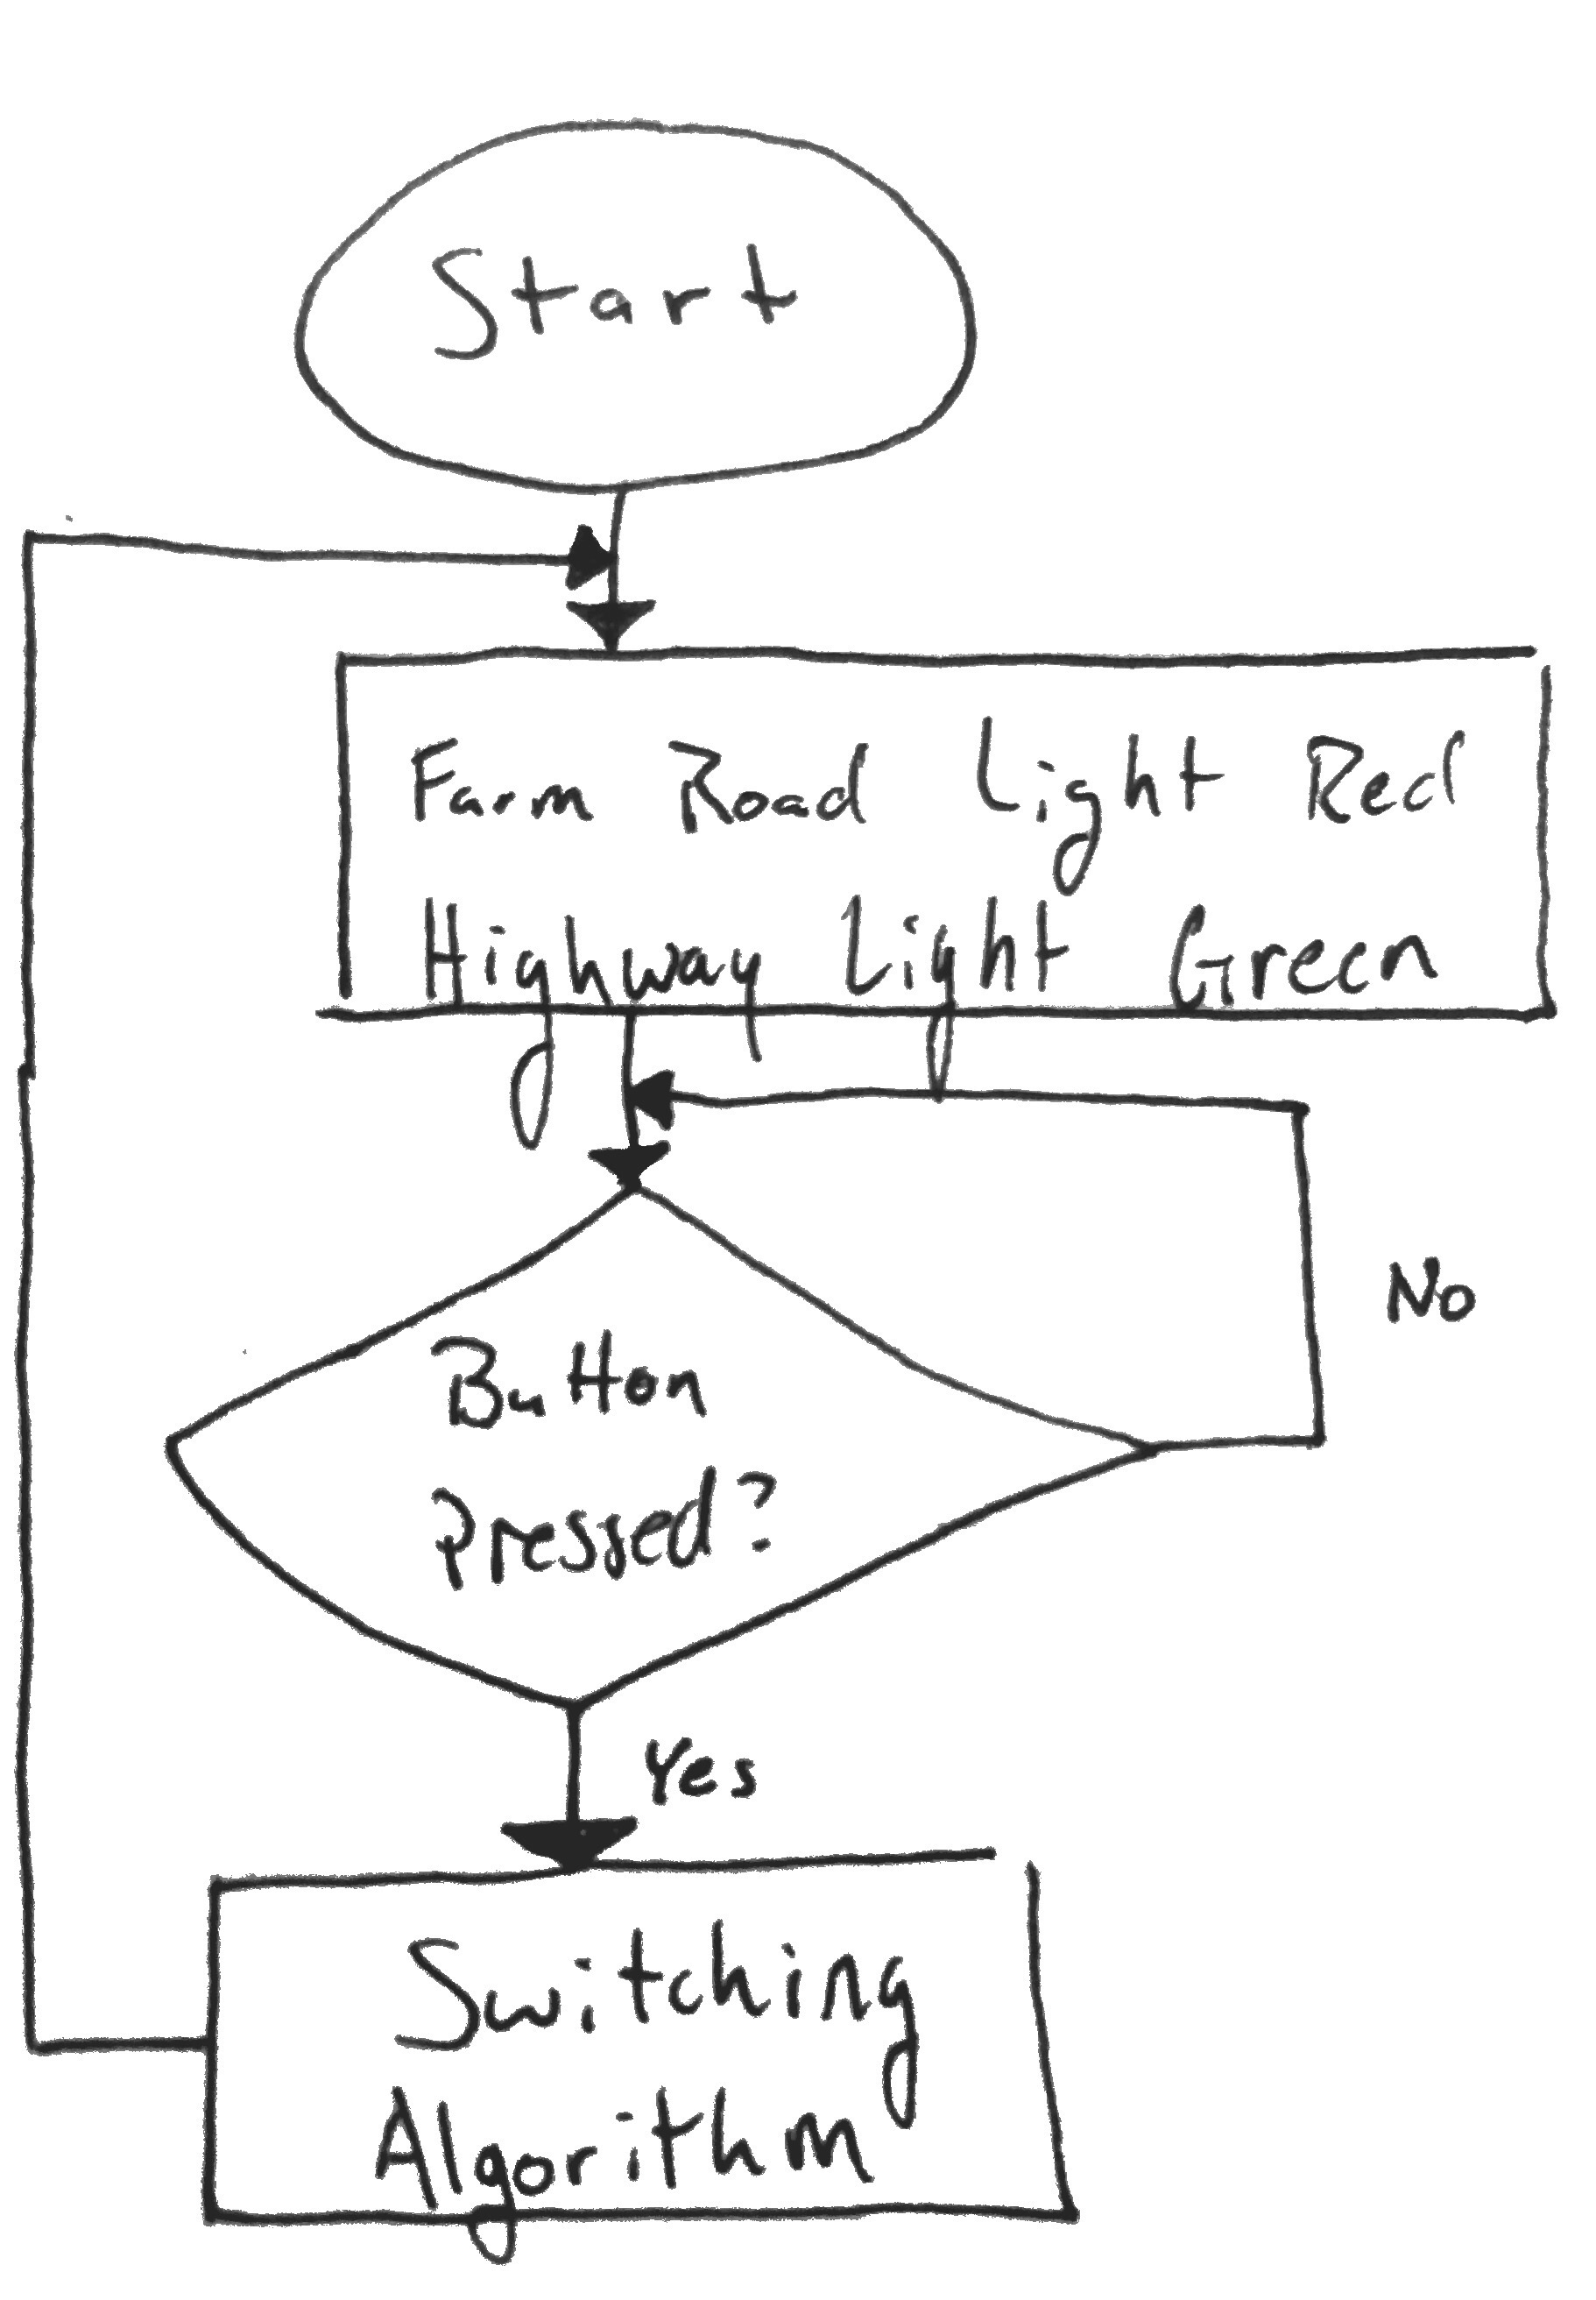 Start
Farm Road Light Red
Highway Light Green
No
Button
Pressed?
Yes
Switching
Algorithm